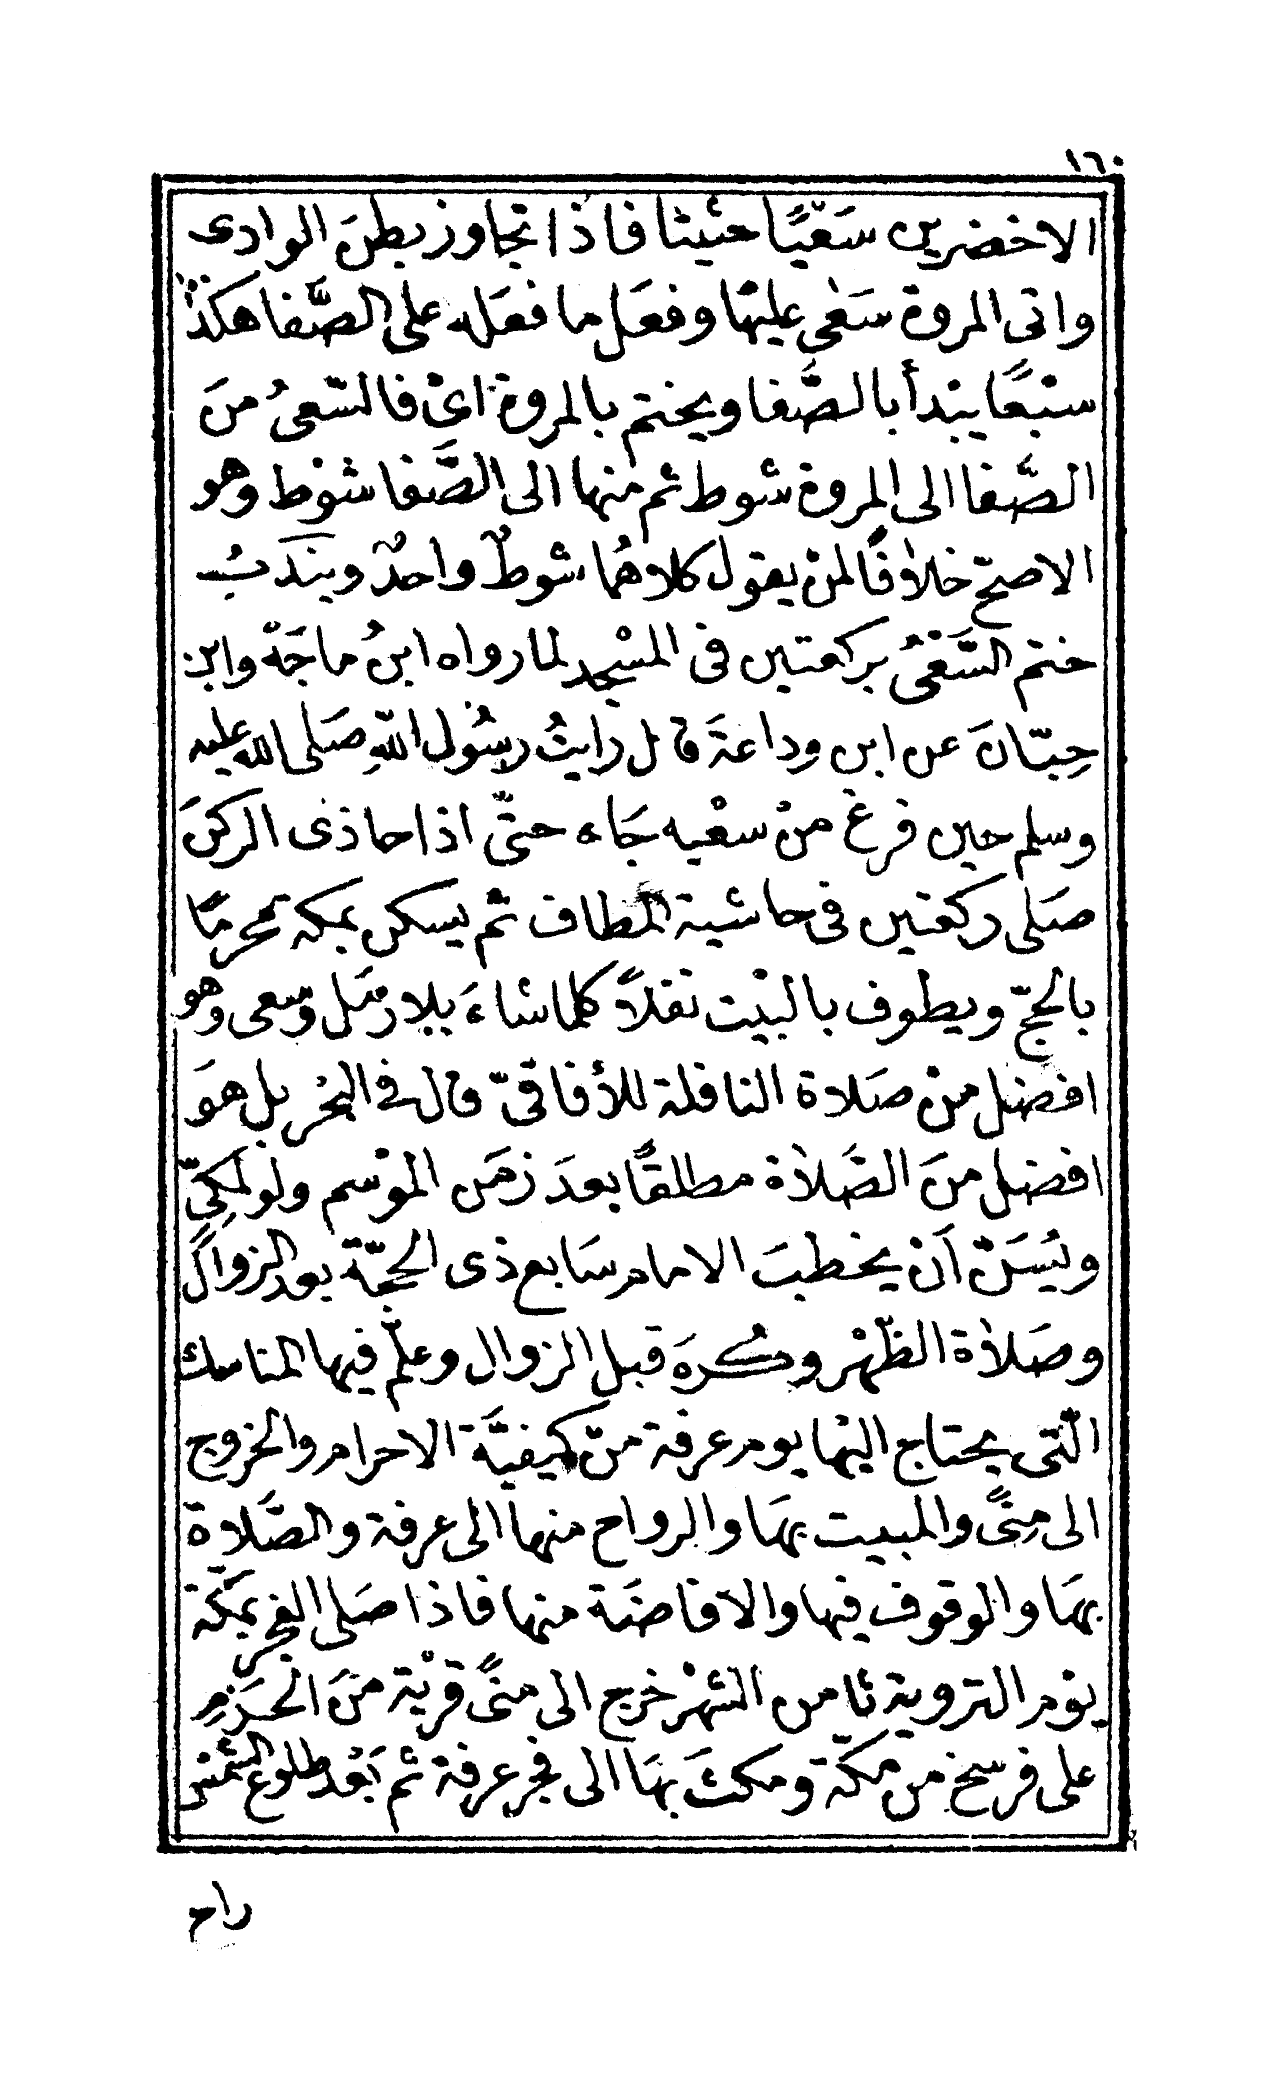 ١٦٠
الاخضرين سَعْيًا حثيثا فاذا تجاوز بطنَ الوادى
واتى المروة سَعٰى عليهَا وفعَل ما فعَله على الصَّفا هكذا
سبْعًا يبْدأ بالصَّفا ويختم بالمروة اىْ فالسّعىُ منَ
الصَّفا الى المروة شوط ثم منها الى الصَّفا شوْط وهو
الاصحّ خلاٰفًا لمنْ يقول كلاهُما شوطٌ واحدٌ ويندَبُ
ختم السَّعْىُ بركعتين فى المسْجد لما رواه ابنُ ماجَةْ وابن
حِبّانَ عن ابن وداعَةَ قال رايتُ رسُول اللّهِ صَلى الله عليه
وسلم حين فرغَ منْ سعْيه جَاء حتّى اذا حاذى الركنَ
صَلى ركعتين فى حاشية المطاف ثم يسكن بمكة محرمًا
بالحجّ ويطوف بالبيْت نفلاً كلما شاءَ بلا رمَل وسعى وهو
افضل منْ صَلاة النافلة للأفاقىّ قال فى البحْر بل هوَ
افضل منَ الصَّلاٰة مطلقًا بعدَ زمَن الموْسم ولو لمكِىّ
ويُسَنّ أنْ يخطبَ الامام سَابع ذى الحجّة بعد الزوال
وصَلاٰة الظّهْر وكُرهَ قبل الزوال وعلّم فيها المناسك
الّتى يحتاج اليْها يوم عرفة منْ كيفيَّة الاحرام والخروج
الى مِنًى والمبيت بهَا والرواح منها الى عرفة والصَّلاة
بهَا والوقوف فيها والافاضَة منها فاذا صَلى الفجر بمكّة
يوْم التروية ثامن الشهْر خرج الى منًى قرْية منَ الحَرَمِ
على فرسخ من مكّة ومكثَ بهَا الى فجر عرفة ثم بَعْد طلوع الشمْس
راح